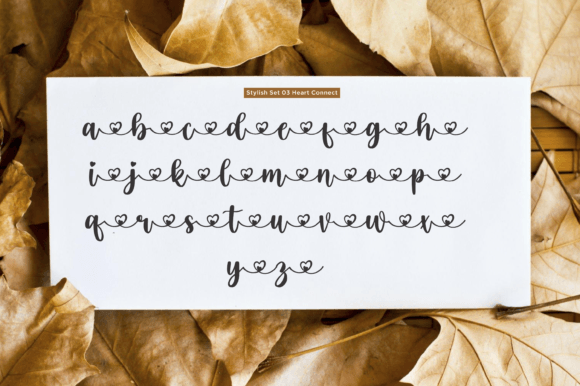 Stylish Set 03 Heart Connect
a b c d e f g h
i j k l m n o p
q r s t u v w x
y z